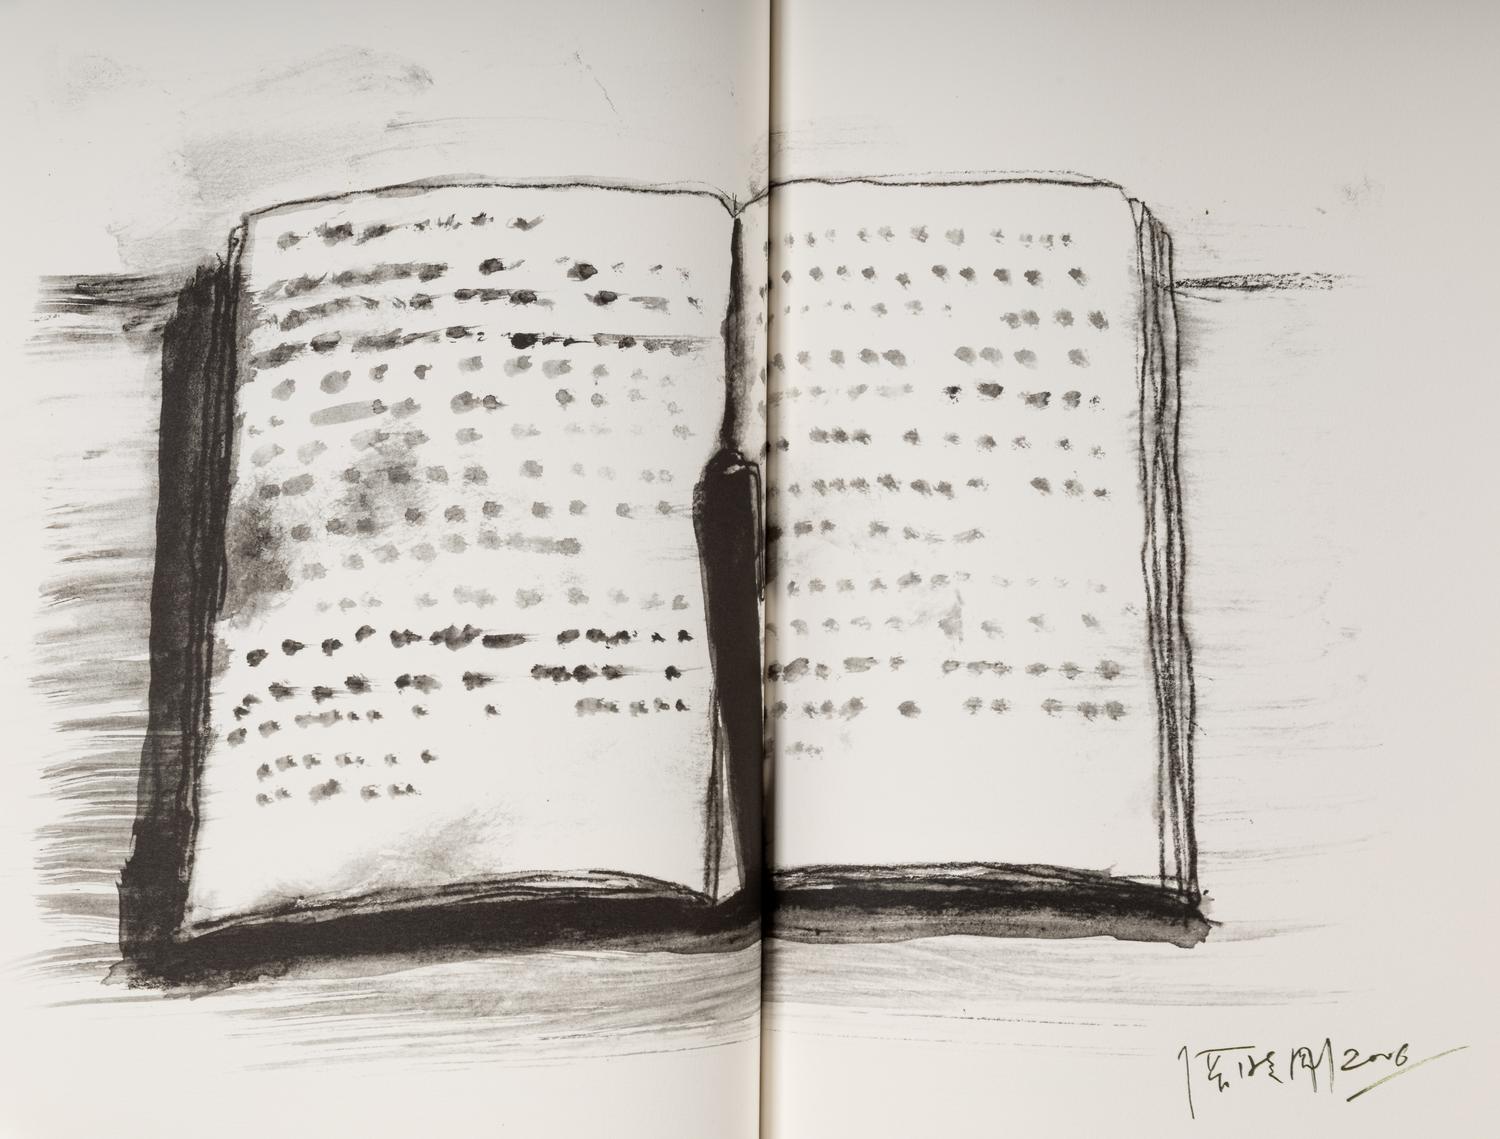 张晓刚 2006